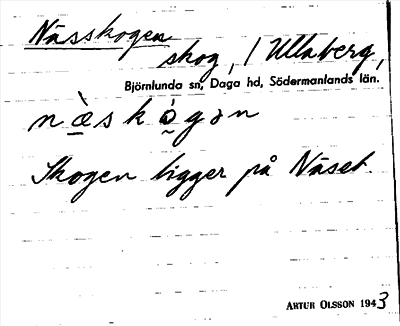 Nässkogen
skog, / Ullaberg,
Björnlunda sn, Daga hd, Södermanlands län.
n æ̀ s k ó̰ g ə n
Skogen ligger på Näset.
ARTUR OLSSON 1943